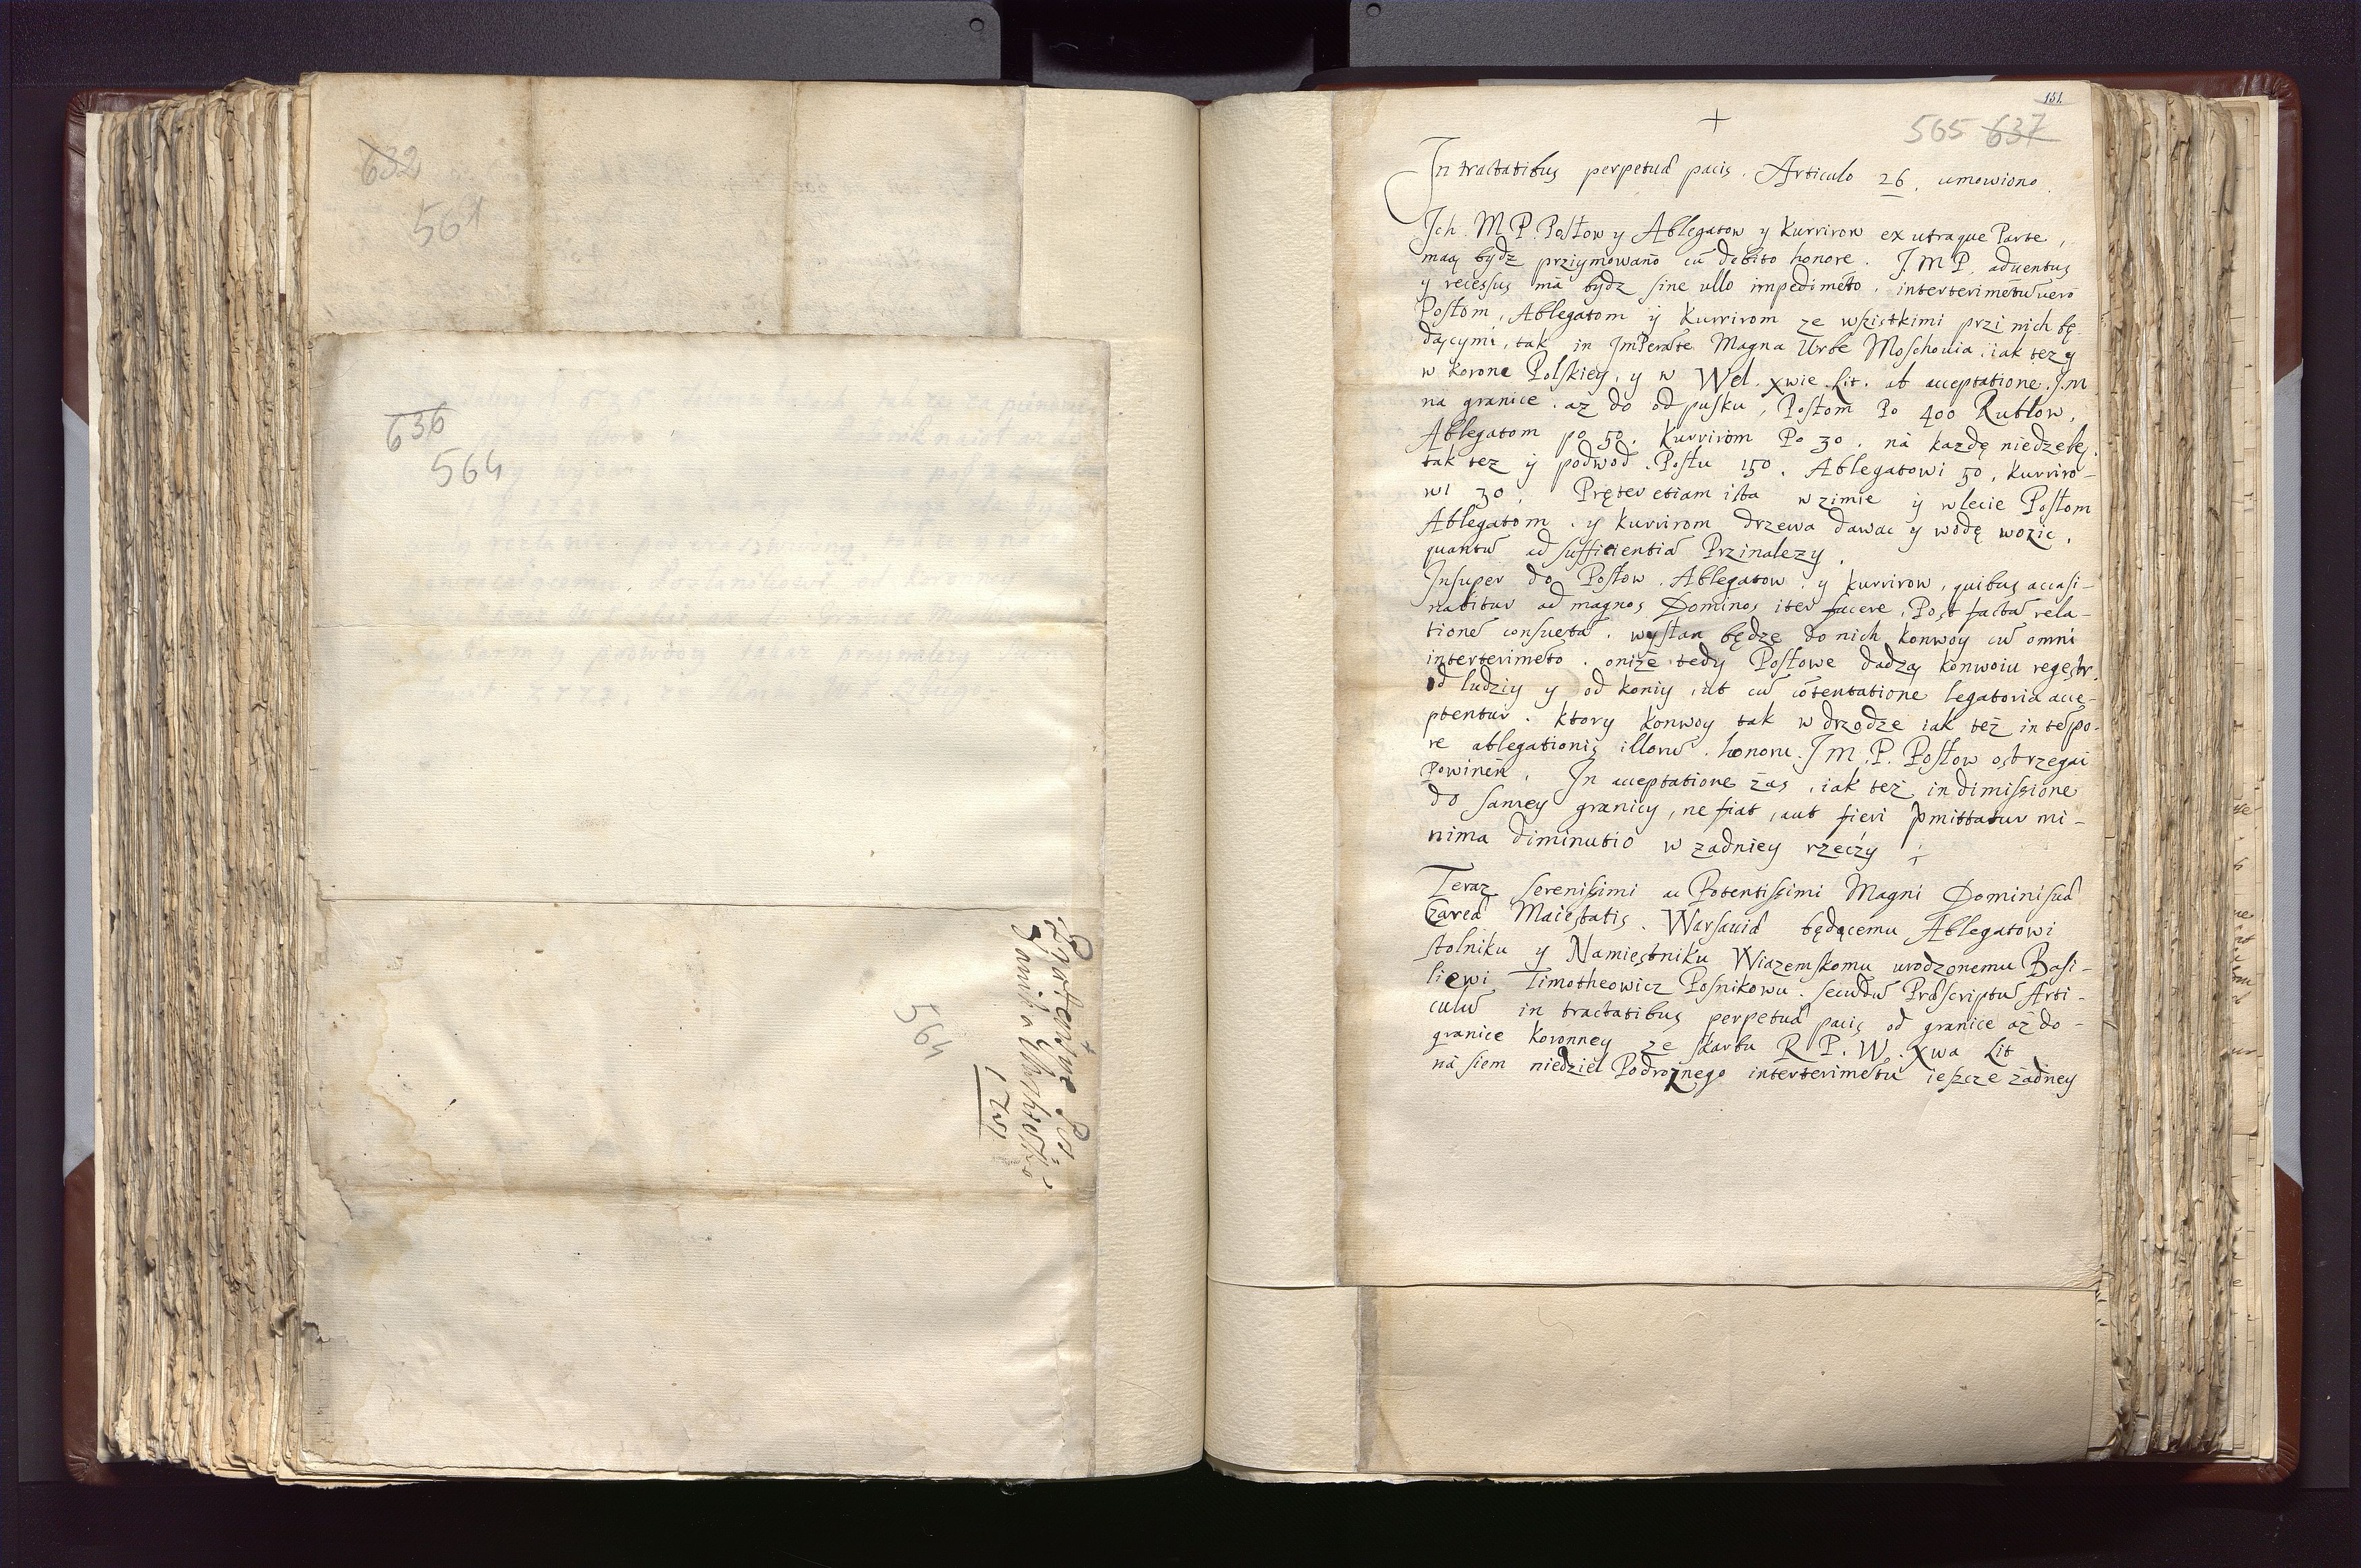 632
561
636
564
564
1701
151.
565 637
+
In tractatibus perpetuæ pacis. Articulo 26. umowiono.
Ich. M P. Posłow y Ablegatow y Kurrirow ex utraque Parte,
maią bydz przyimowano cū debito honore. J. M P. aduentus
y recessus ma bydz sine ullo impedimēto. intertenimētū uero
Posłom, Ablegatom y Kurrirom ze wszistkimi przi nich bę-
dącymi, tak in Magna Urbe Moschouia, iak tez y
w Korone Polskiey, y w Wel. Xwie. Lit. ab acceptatione J. M
na granice. az do odpusku, Posłom Po 400 Rublow,
Ablegatom po 50. Kurrirom Po 30. na kazdę niedzelę,
tak tez y podwod. Posłu 150. Ablegatowi 50, Kurriro-
wi 30. Pręter etiam ista w zimie y w lecie Posłom
Ablegatom. y Kurrirom drzewa dawac y wodę wozic,
quantū ad sufficientiā Przinalezy.
Insuper do Posłow. Ablegatow. y Kurrirow, quibus
ad magnos Dominos iter facere, Post factā rela-
tionē consuetā. wysłan będze do nich konwoy cū omni
intertenimēto. oniże tedy Posłowe dadzą konwoiu regestr.
od ludziy y od koniy, ut cū cōtentatione legatoria acce-
ptentur. ktory konwoy tak w drzodze iak też in tēpo-
re ablegationis illorū. honoru. J M. P. Posłow ostrzegai
Powinen. In acceptatione żas, iak też in dimissione
do samey granicy, ne fiat, aut fieri pmittatur mi-
nima diminutio w zadniey rzeczy
Teraz serenissimi ac Potentissimi Magni Domini suæ
Czareæ Maiestatis. Warsauiæ będącemu Ablegatowi
stolniku y Namiestniku Wiazemskomu urodzonemu Basi-
liewi Timotheowicz Posnikowu. secūdū Præscriptū Arti-
culū in tractatibus perpetuæ pacis od granice aż do-
granice Koronney ze skarbu R P. W. Xwa Lit
na siem niedziel Podroznego intertenimētu ieszcze żadney